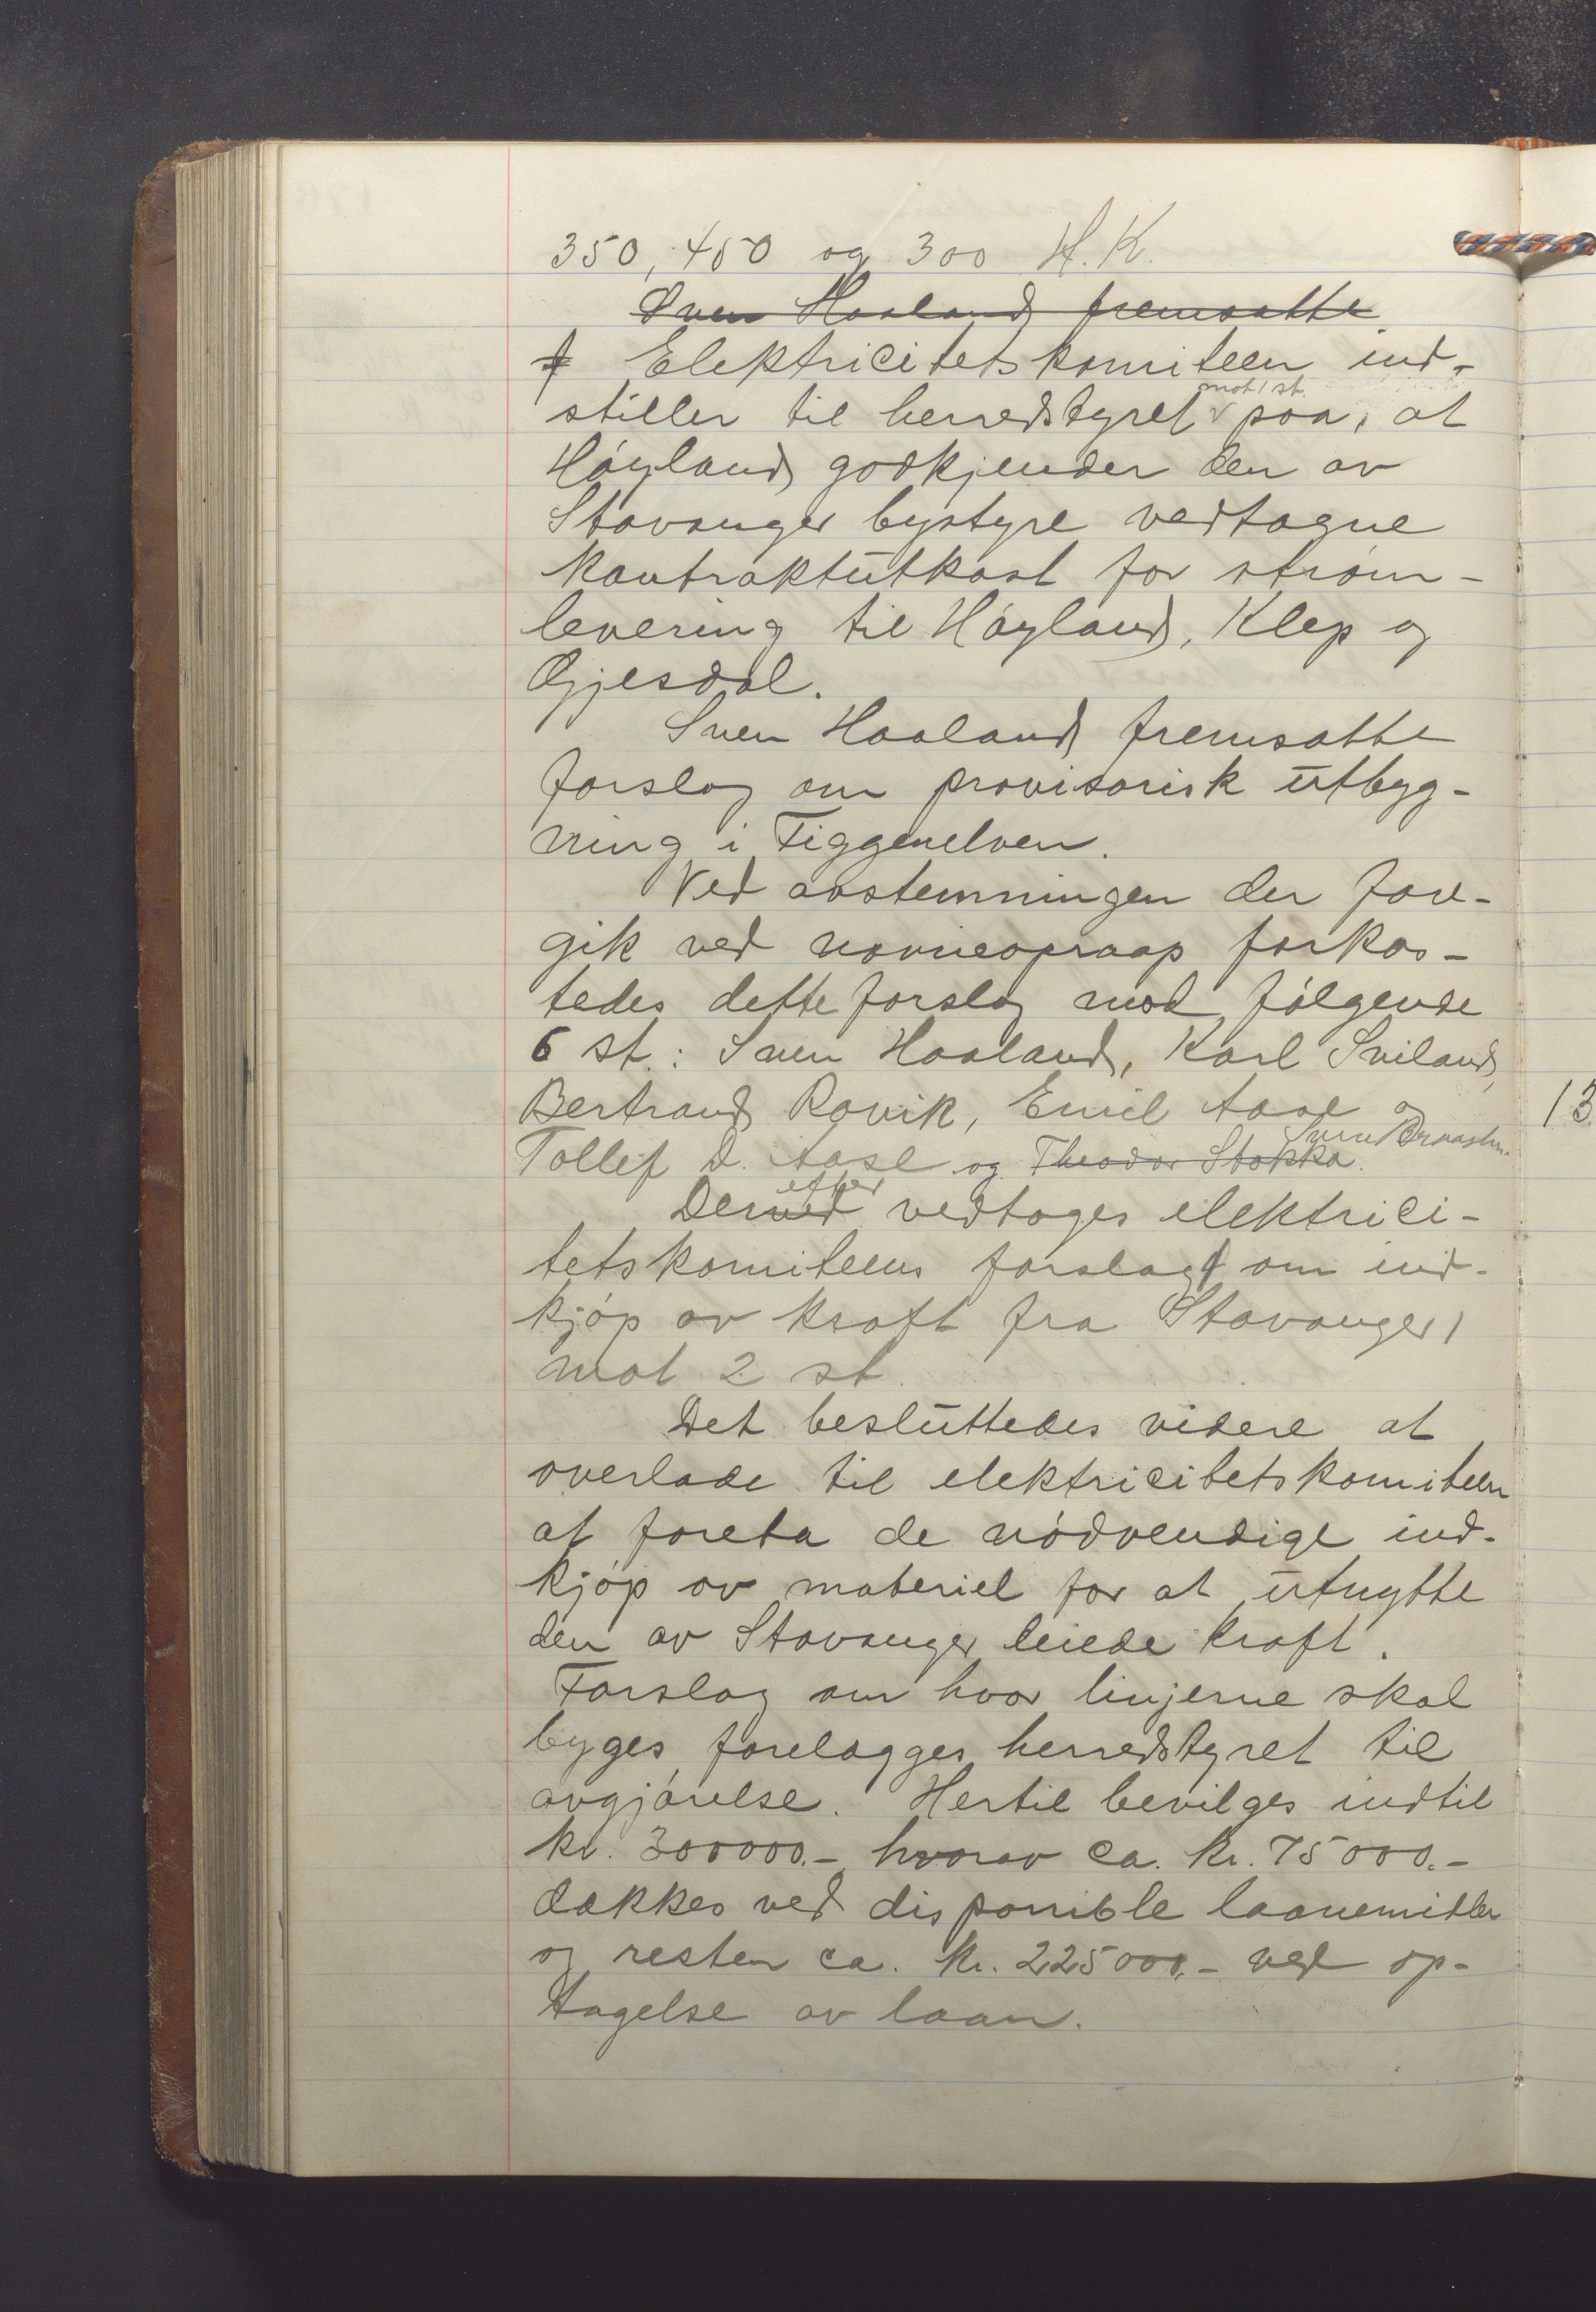 350, 450 og 300 H.K.
Sven Haaland fremsatte
f Elektricitetskomiteen ind-
stiller til herredstyret mot 1 st. paa, at
Høyland godkjender den av
Stavanger bystyre vedtagne
kontraktutkast for strøm-
levering til Høyland, Klep og
Gjesdal.
Sven Haaland fremsatte
forslag om provisorisk utbyg-
ning i Figgenelven.
Ved avstemningen der fore-
gik ved navneopraap forkas-
tedes dette forslag mod følgende
6 st.: Sven Haaland, Karl Sviland,
Bertrand Rovik, Emil Aase og
Tollef D. Aase og Theodor Stokka. Sven
Derved efter vedtoges elektrici-
tetskomiteens forslag om ind-
kjøp av kraft fra Stavanger,
mot 2 st.
Det besluttedes videre at
overlade til elektricitetskomiteen
at foreta de nødvendige ind-
kjøp av materiel for at utnytte
den av Stavanger leiede kraft.
Forslag om hvor linjerne skal
byges forelægges herredstyret til
avgjørelse. Hertil bevilges indtil
kr. 300000.- hvorav ca. kr. 75000.-
dækkes ved disponible laanemidler
og resten ca. kr. 225000.- ved op-
tagelse av laan.
13